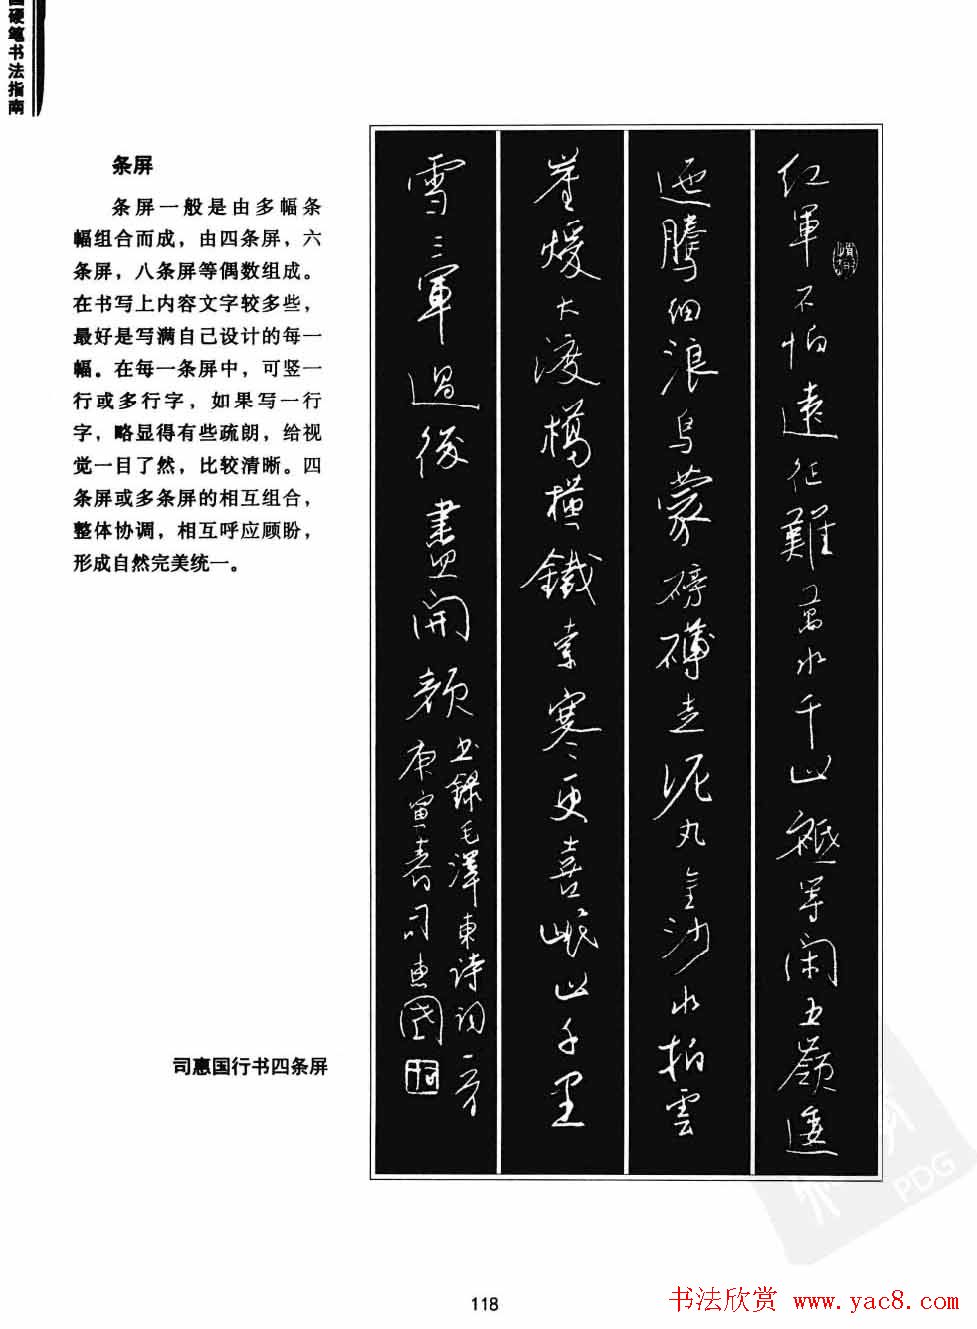 硬笔书法指南
条屏
条屏一般是由多幅条
幅组合而成，由四条屏，六
条屏，八条屏等偶数组成。
在书写上内容文字较多些，
最好是写满自己设计的每一
幅。在每一条屏中，可竖一
行或多行字，如果写一行
字，略显得有些疏朗，给视
觉一目了然，比较清晰。四
条屏或多条屏的相互组合，
整体协调，相互呼应顾盼，
形成自然完美统一。
红軍不怕遠征難萬水千山衹等闲五嶺逶
迤騰细浪烏蒙磅礴走泥丸金沙水拍雲
崖煖大渡橋横鐵索寒更喜岷山千里
雪三軍過後盡開颜
书録毛澤東诗词一首
庚寅春司惠國
司惠国行书四条屏
PDG
118
书法欣赏 www.yac8.com